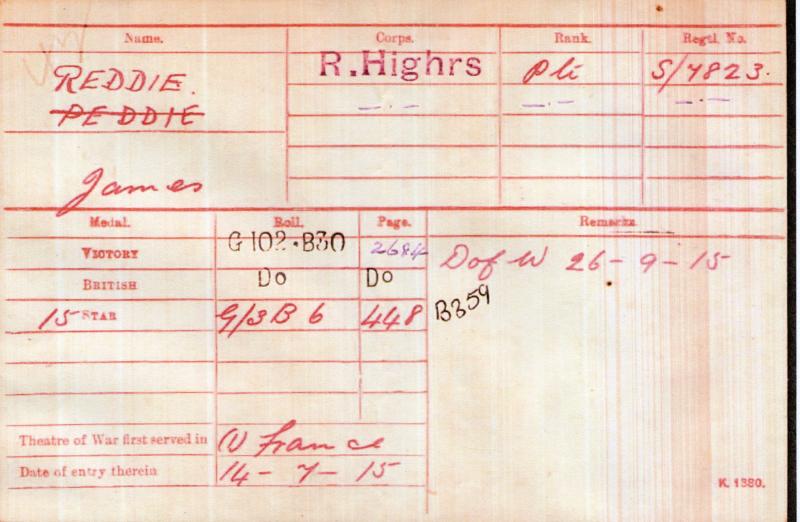 Name. Corps. Rank. Regtl. No.
REDDIE. R.Highrs Pte S/7823.
PEDDIE —·— —·— —·—
James
Medal. Roll. Page. Remarks.
VICTORY G 102·B30 2684 D of W 26-9-15
BRITISH Do Do
15 STAR G/3 B 6 448 B359
Theatre of War first served in (1) France
Date of entry therein 14-7-15
K. 1380.